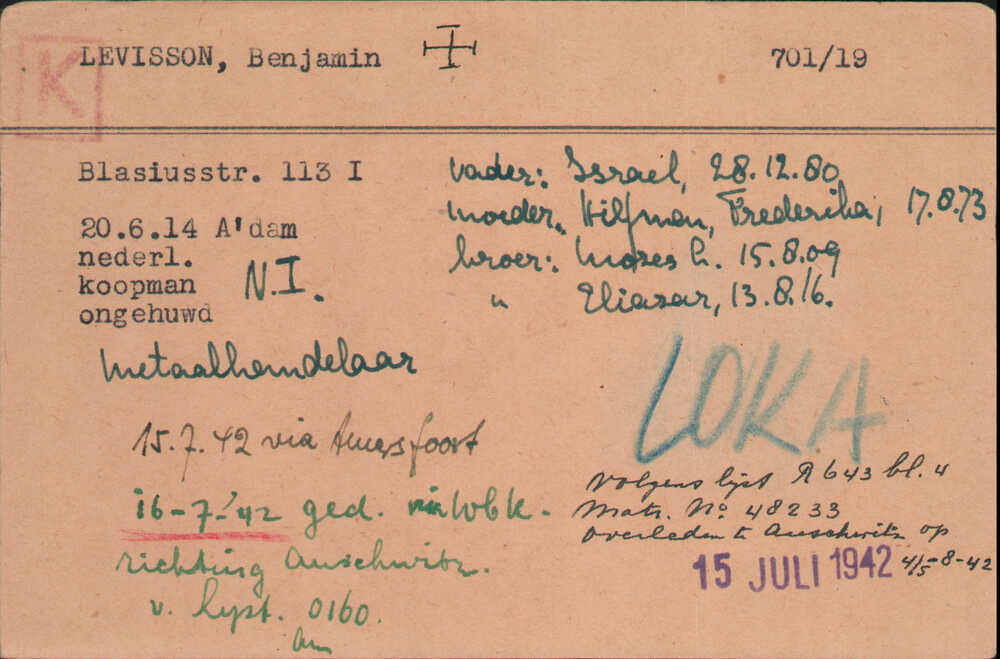 K
LEVISSON, Benjamin 701/19
Blasiusstr. 113 I
20.6.14 A'dam
nederl.
koopman
ongehuwd
N.I.
metaalhandelaar
vader: Israel, 28.12.80
moeder„ Hilfman, Frederika, 17.8.73
broer: Mozes L. 15.8.09
" Eliazar, 13.8.16.
LOKA
15.7.42 via Amersfoort
16-7-'42 ged. Wbk.
richting Auschwitz.
v. lyst. 0160.
volgens lijst A 643 bl. 4
Matr. No 48233
overleden te Auschwitz op
4/5-8-42
15 JULI 1942